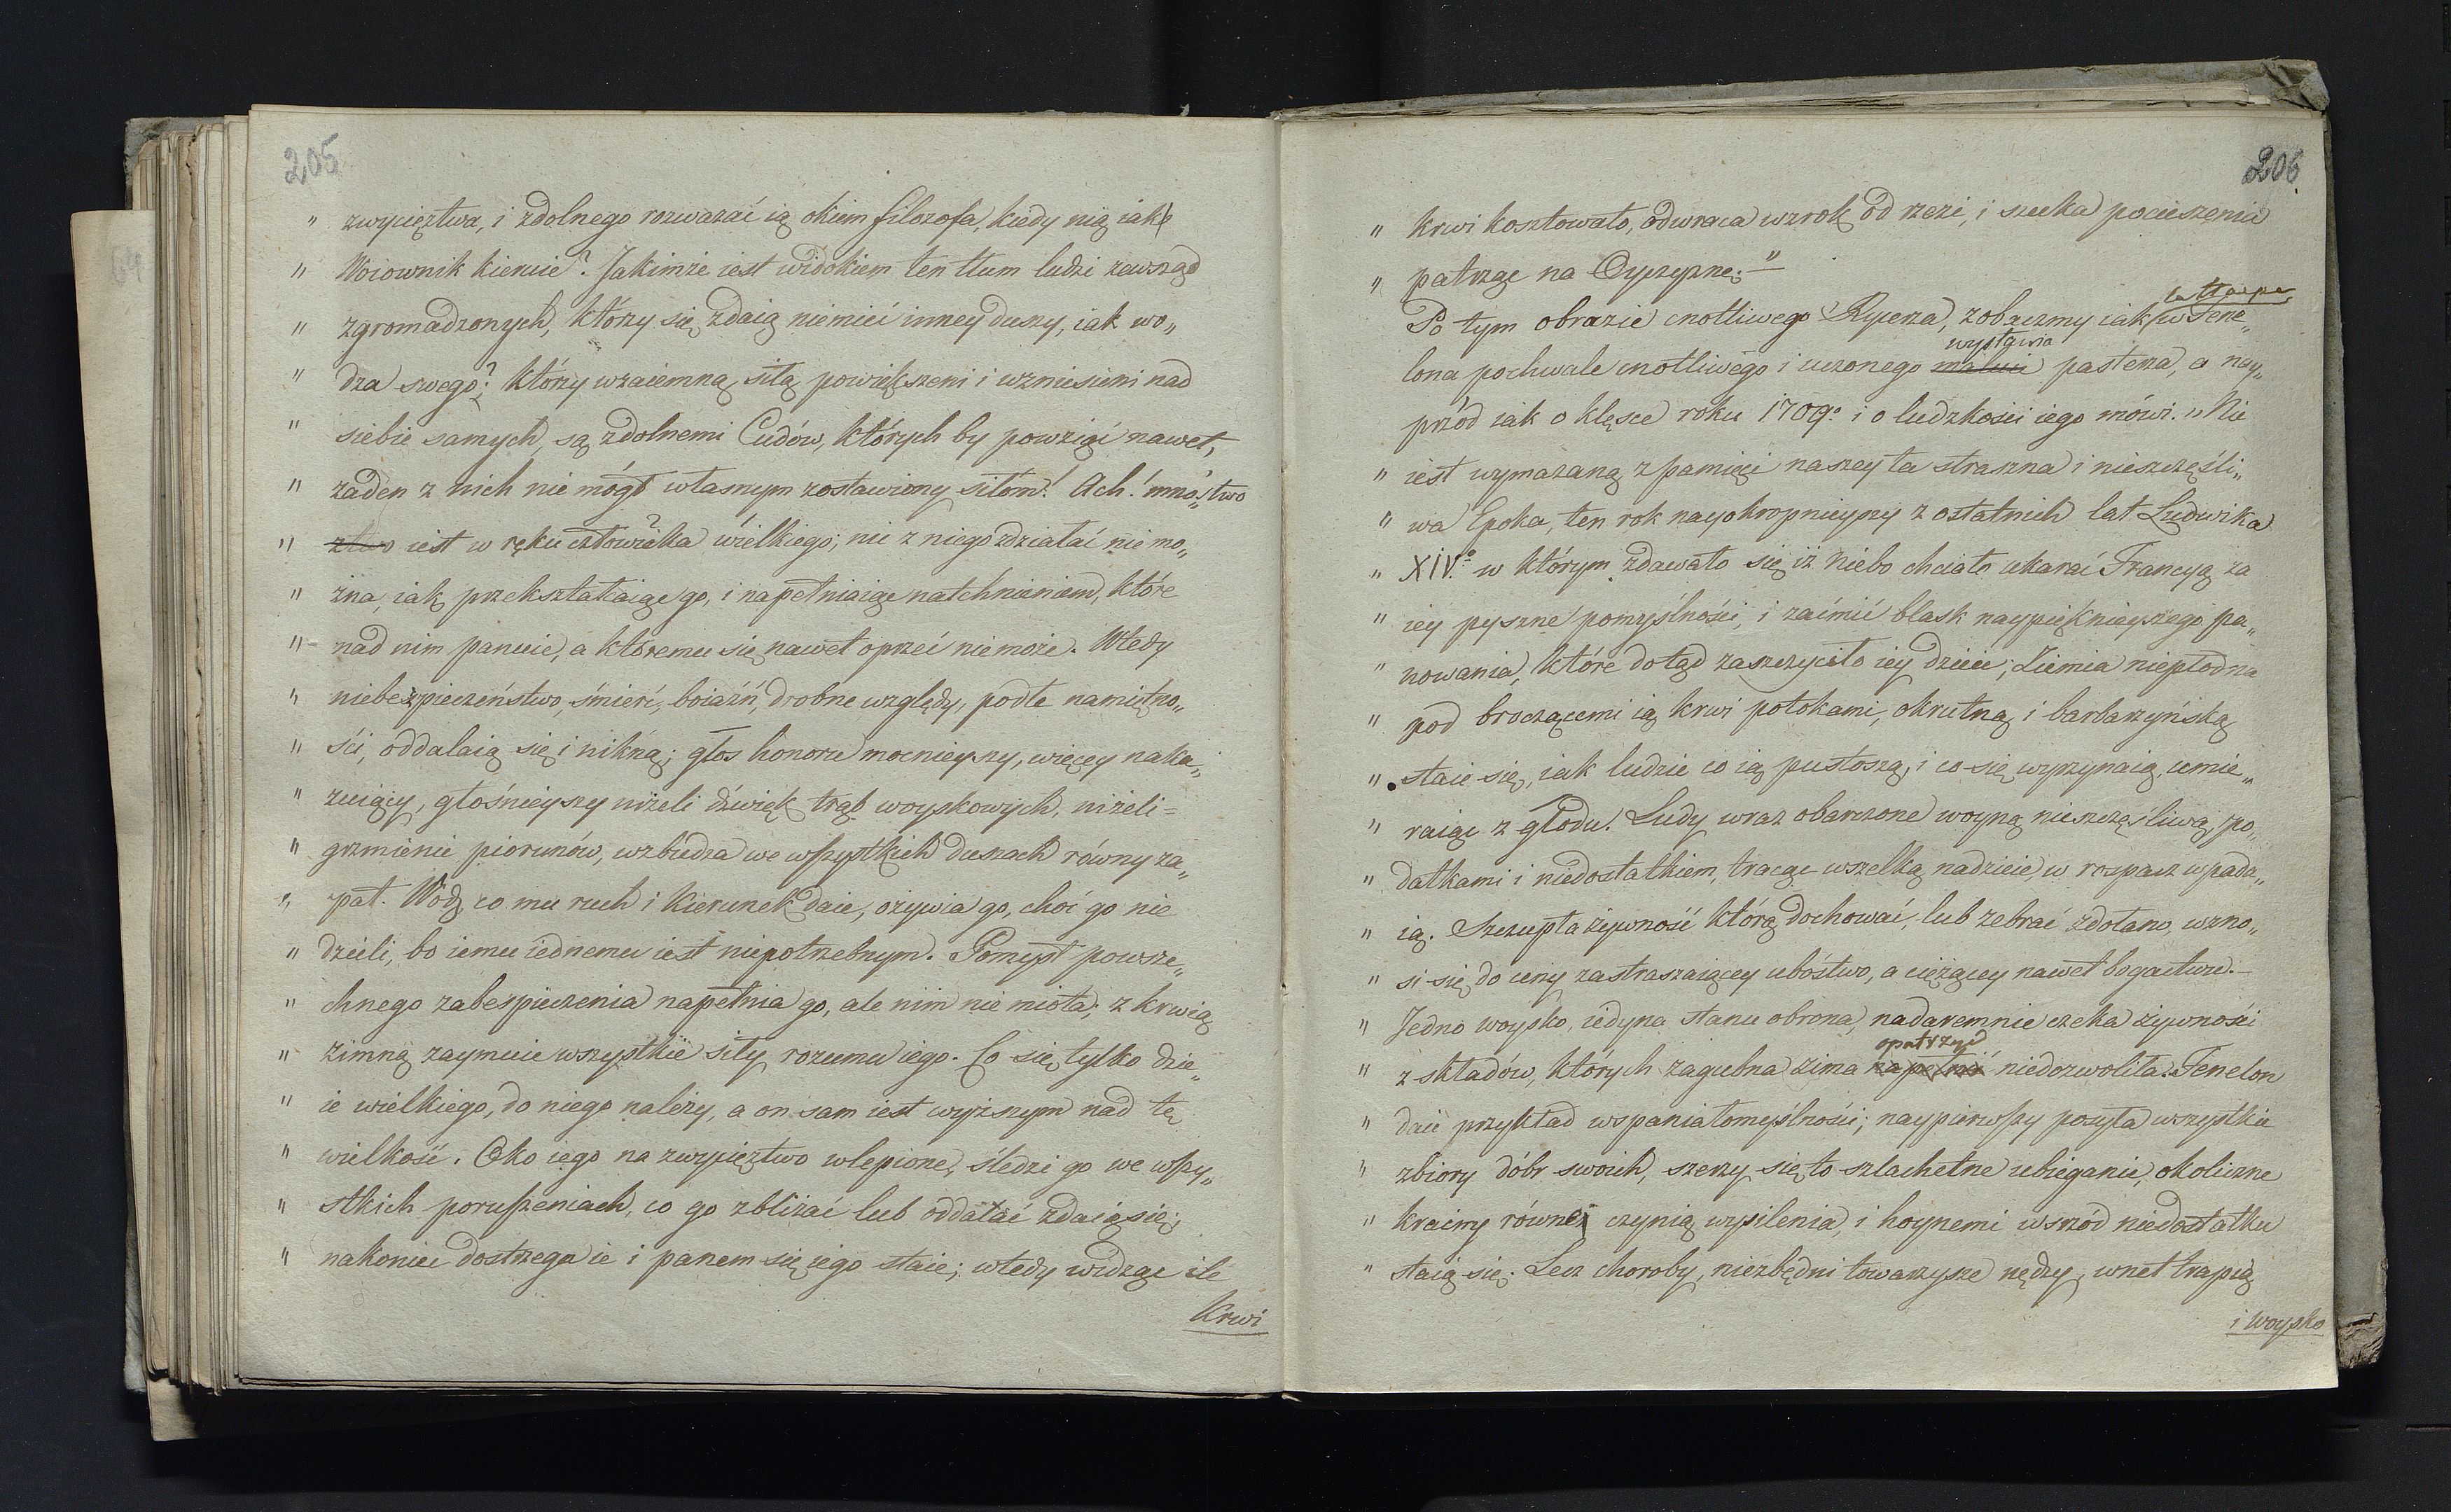 205
„ zwycięztwa, i zdolnego rozważać ią okiem filozofa, kiedy nią iak
„ Woiownik kieruie? Jakimże iest widokiem ten tłum ludzi zewsząd
„ zgromadzonych, którzy się zdaią niemieć inney duszy, iak wo„
„ dza swego? którzy wzaiemną siłą powiększeni i wzniesieni nad
„ siebie samych, są zdolnemi Cudów, których by powziąć nawet,
„ żaden z nich nie mógł własnym zostawiony siłom! Ach! mnó„stwo
„ iest w ręku człowieka wielkiego; nic z niego zdziałać nie mo„
„ żna, iak przekształcaiąc go, i napełniaiąc natchnieniem, które
„ nad nim panuie, a któremu się nawet oprzeć nie może. Wtedy
„ niebezpieczeństwo, śmierć, boiaźń, drobne względy, podłe namiętno„
„ ści, oddalaią się i nikną; głos honoru mocnieyszy, więcey naka„
„ zuiący, głośnieyszy niżeli dźwięk trąb woyskowych, niżeli=
„ grzmienie piorunów, wzbudza we wszystkich duszach równy za„
„ pał. Wódz co mu ruch i kierunek daie, ożywia go, choć go nie
„ dzieli, bo iemu iednemu iest niepotrzebnym. Pomysł powsze„
„ chnego zabespieczenia napełnia go, ale nim nie miota; z krwią
„ zimną zaymuie wszystkie siły rozumu iego. Co się tylko dzie„
„ ie wielkiego, do niego należy, a on sam iest wyższym nad tę
„ wielkość. Oko iego na zwycięztwo wlepione, śledzi go we wszy„
„ stkich poruszeniach, co go zbliżać lub oddalać zdaią się;
„ nakoniec dostrzega ie i panem się iego staie; wtedy widząc ile
Krwi
206
„ krwi kosztowało, odwraca wzrok od rzezi, i szuka pocieszenia
„ patrząc na Oyczyznę.“
Po tym obrazie cnotliwego Rycerza, zobaczmy iak w Fene„
wystawia
lona pochwale cnotliwego i uczonego maluie pasterza, a nay„
przód iak o klęsce roku 1709º i o ludzkości iego mówi. „Nie
„ iest wymazaną z pamięci naszey ta straszna i nieszczęśli„
„ wa Epoka, ten rok nayokropnieyszy z ostatnich lat Ludwika
„ XIVº w którym zdawało się iż niebo chciało ukarać Francyą za
„ iey pyszne pomyślności, i zaćmić blask naypięknieyszego pa„
„ nowania, które dotąd zaszczyciło iey dzieie; Ziemia niepłodna
„ pod broczącemi ią krwi potokami, okrutną i barbarzyńską
„ staie się, iak ludzie co ią pustoszą, i co się wyrzynaią, umie„
„ raiąc z głodu. Ludy wraz obarczone woyną nieszczęśliwą, po„
„ datkami i niedostatkiem, tracąc wszelką nadzieię w rospacz wpada„
„ ią. Szczupła żywność którą dochować, lub zebrać zdołano, wzno„
„ si się do ceny zastraszaiącey ubóstwo, a ciężącey nawet bogactwu.–
„ Jedno woysko, iedyna stanu obrona, nadaremnie czeka żywności
opatrzyć
„ z składów, których zagubna zima napełnić niedozwoliła. Fenelon
„ daie przykład wspaniałomyślności; naypierwszy posyła wszystkie
„ zbiory dóbr swoich, szerzy się to szlachetne ubieganie, okoliczne
„ krainy równe czynią wysilenia, i hoynemi wsród niedostatku
„ staią się. Lecz choroby, niezbędni towarzysze nędzy, wnet trapią
i woysko